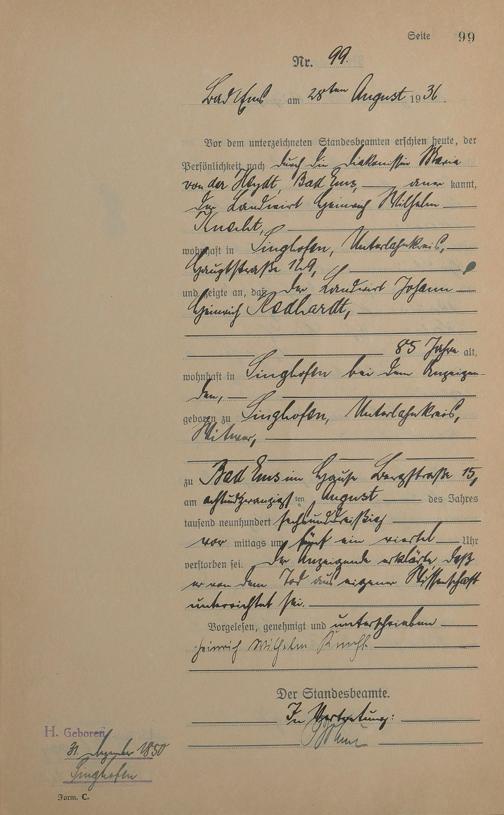 Seite 99
Nr. 99.
Bad Ems am 28ten August 1936.
Vor dem unterzeichneten Standesbeamten erschien heute, der
Persönlichkeit nach durch die Diakonisse Maria
von der Heydt, Bad Ems, anerkannt,
der Landwirt Heinrich Wilhelm
Knecht,
wohnhaft in Singhofen, Unterlahnkreis,
Hauptstraße 129,
und zeigte an, daß der Landwirt Johann
Heinrich
85 Jahre alt,
wohnhaft in Singhofen bei dem Anzeigen-
den,
geboren zu Singhofen, Unterlahnkreis,
Witwer,
zu Bad Ems im Hause Bergstraße 15,
am achtundzwanzigsten August des Jahres
tausend neunhundert sechsunddreißig
vor mittags um fünf ein viertel Uhr
verstorben sei. Der Anzeigende erklärte, daß
er von dem Tod aus eigener Wissenschaft
unterrichtet sei.
Vorgelesen, genehmigt und unterschrieben
Heinrich Wilhelm Knecht
Der Standesbeamte.
In Vertretung:
H. Geboren
31. Dezember 1850
Singhofen
Form. C.